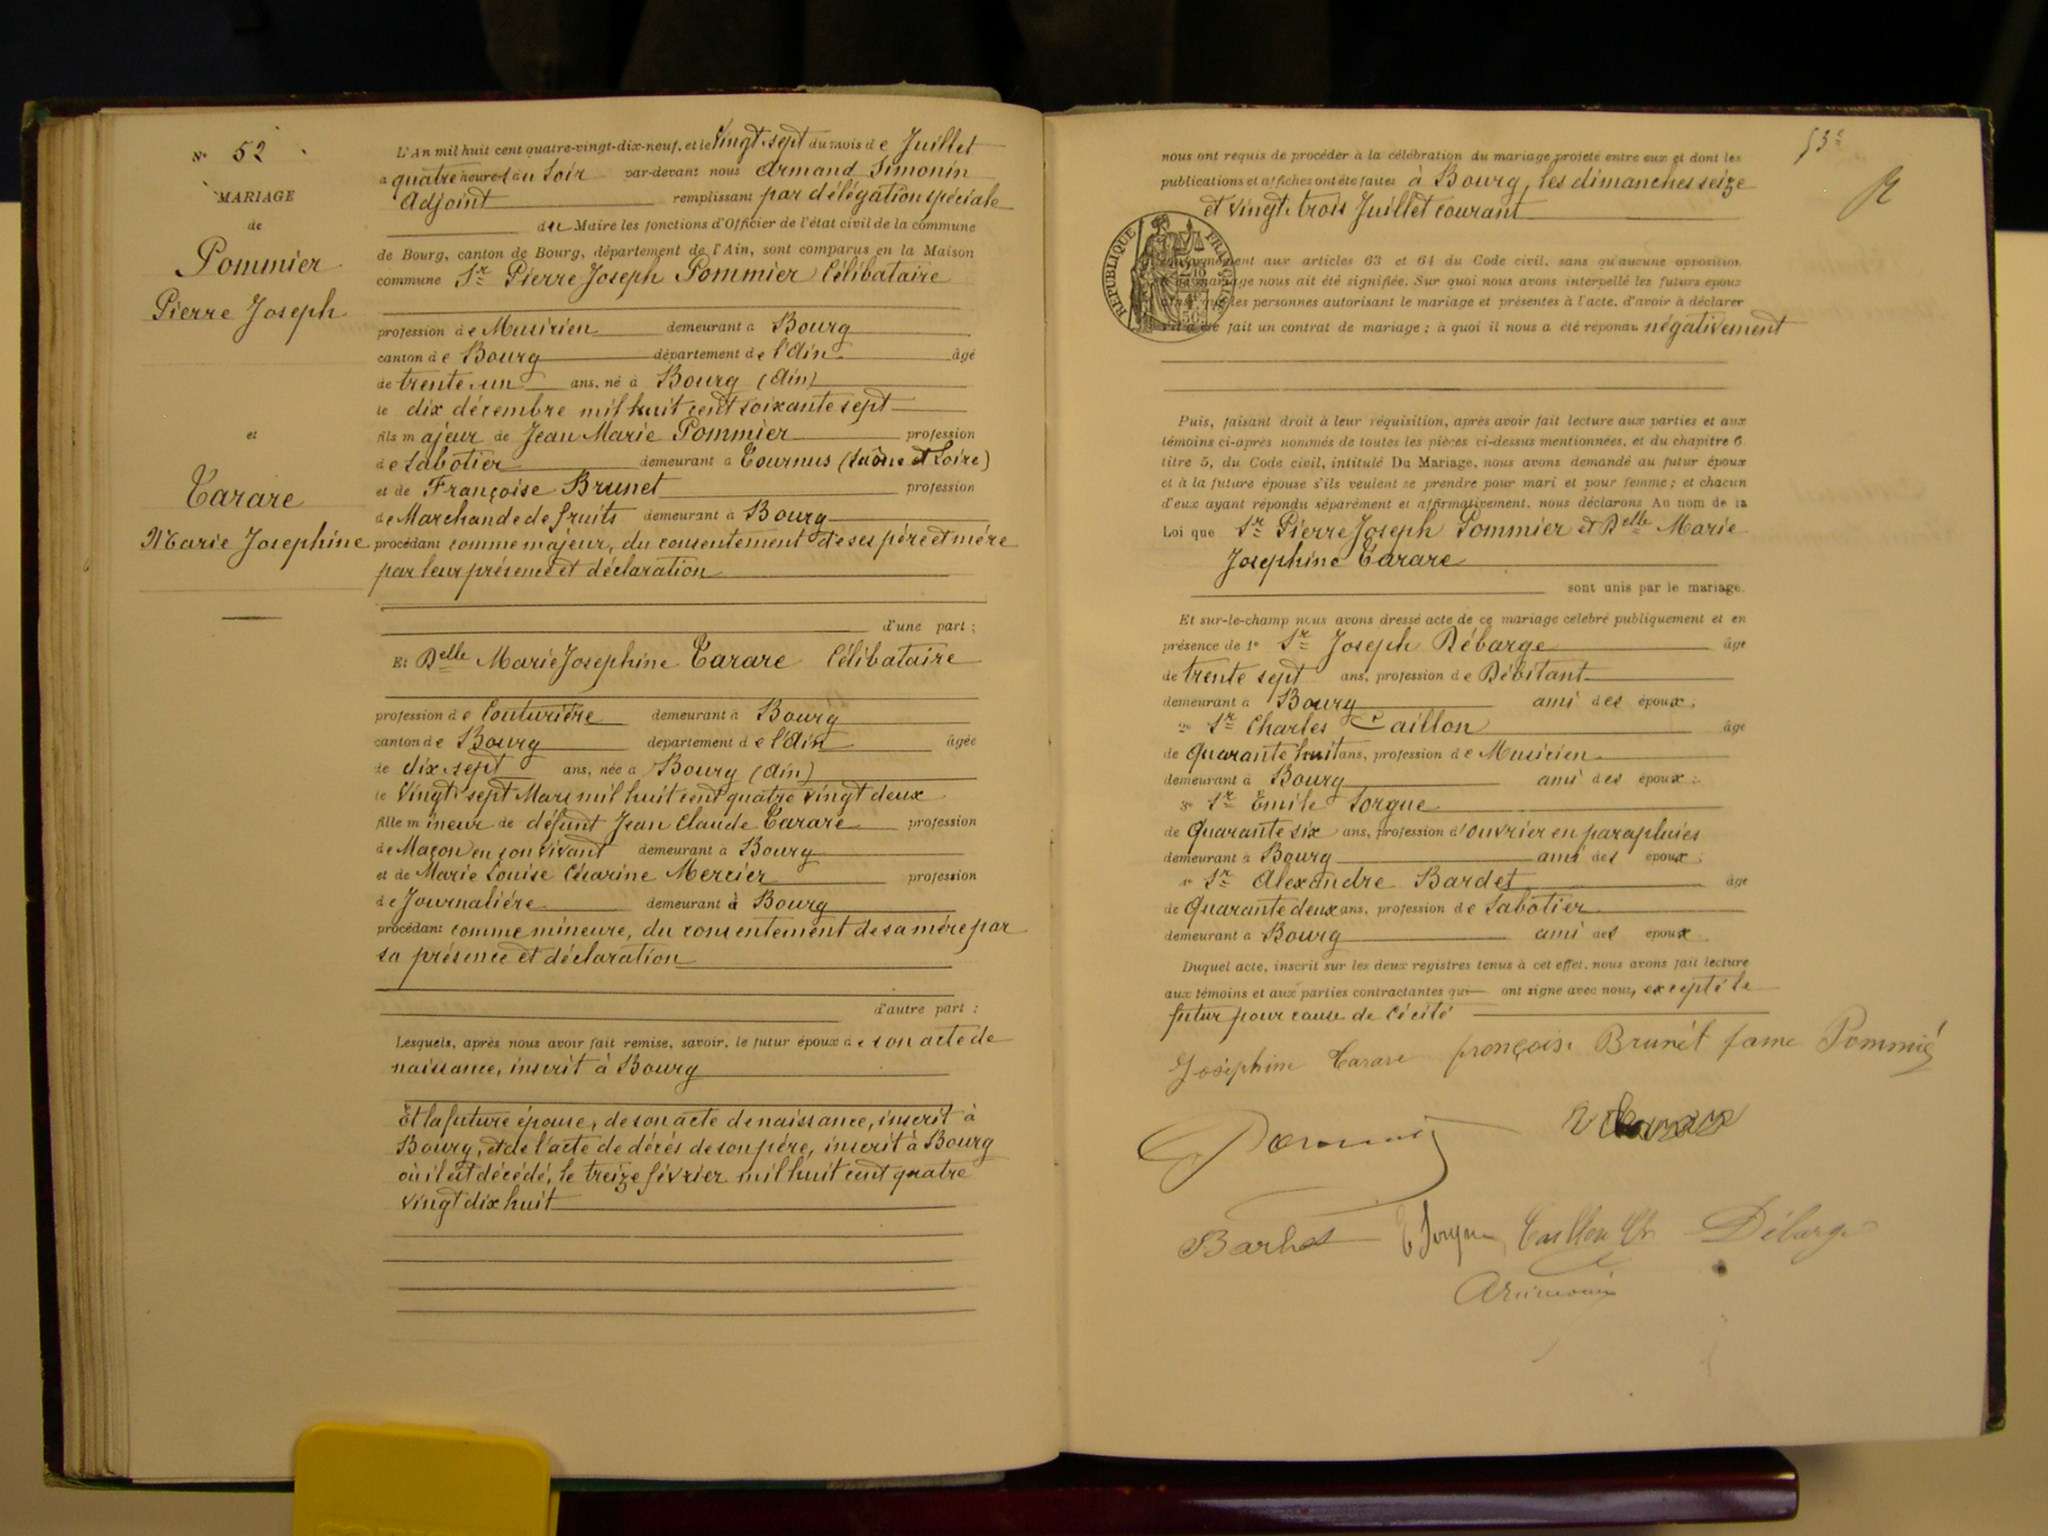 N° 52
MARIAGE
de
Pommier
Pierre Joseph
et
Tarare
Marie Josephine
L'An mil huit cent quatre-vingt-dix-neuf, et le Vingt sept du mois de Juillet
a quatre heures du Soir par-devant nous Armand Simonin
Adjoint remplissant par délégation spéciale
du Maire les fonctions d'Officier de l'état civil de la commune
de Bourg, canton de Bourg, département de l'Ain, sont comparus en la Maison
commune Sr Pierre Joseph Pommier Célibataire
profession de Musicien demeurant à Bourg
canton de Bourg département de l'Ain âgé
de trente un ans, né à Bourg (Ain)
le dix décembre mil huit cent soixante sept
fils majeur de Jean Marie Pommier profession
de Sabotier demeurant à Tournus (Saône et Loire)
et de Françoise Brunet profession
de Marchande de fruits demeurant à Bourg
procédant comme majeur, du consentement de ses père et mère
par leur présence et déclaration
d'une part ;
Et Delle Marie Josephine Tarare Célibataire
profession de Couturière demeurant à Bourg
canton de Bourg département de l'Ain âgée
de dix sept ans, née à Bourg (Ain)
le Vingt sept Mars mil huit cent quatre vingt deux
fille mineur de défunt Jean Claude Tarare profession
de Maçon en son vivant demeurant à Bourg
et de Marie Louise Césarine Mercier profession
de Journalière demeurant à Bourg
procédant comme mineure, du consentement de sa mère par
sa présence et déclaration
d'autre part :
Lesquels, après nous avoir fait remise, savoir, le futur époux de son acte de
naissance, inscrit à Bourg
Et la future épouse, de son acte de naissance, inscrit à
Bourg, et de l'acte de décès de son père, inscrit à Bourg
où il est décédé, le treize février mil huit cent quatre
vingt dix huit
53e
nous ont requis de procéder à la célébration du mariage projeté entre eux et dont les
publications et affiches ont été faites à Bourg, les dimanches seize
et vingt trois Juillet courant
RÉPUBLIQUE FRANÇAISE
conformément aux articles 63 et 64 du Code civil, sans qu'aucune opposition
mariage nous ait été signifiée. Sur quoi nous avons interpellé les futurs époux
les personnes autorisant le mariage et présentes à l'acte, d'avoir à déclarer
fait un contrat de mariage ; à quoi il nous a été répondu négativement
Puis, faisant droit à leur réquisition, après avoir fait lecture aux parties et aux
témoins ci-après nommés de toutes les pièces ci-dessus mentionnées, et du chapitre 6
titre 5, du Code civil, intitulé Du Mariage, nous avons demandé au futur époux
et à la future épouse s'ils veulent se prendre pour mari et pour femme ; et chacun
d'eux ayant répondu séparément et affirmativement, nous déclarons Au nom de la
Loi que Sr Pierre Joseph Pommier et Delle Marie
Josephine Tarare
sont unis par le mariage.
Et sur-le-champ nous avons dressé acte de ce mariage célébré publiquement et en
présence de 1° Sr Joseph Débarge âgé
de trente sept ans, profession de Débitant
demeurant à Bourg ami des époux ;
2° Sr Charles Taillon âgé
de Quarante huit ans, profession de Musicien
demeurant à Bourg ami des époux ;
3° Sr Emile Sorgue
de Quarante six ans, profession d'ouvrier en parapluies
demeurant à Bourg ami des époux ;
4° Sr Alexandre Bardet âgé
de Quarante deux ans, profession de Sabotier
demeurant à Bourg ami des époux
Duquel acte, inscrit sur les deux registres tenus à cet effet, nous avons fait lecture
aux témoins et aux parties contractantes qui ont signé avec nous, excepté le
futur pour cause de Cécité
Joséphine Tarare françoise Brunét fame Pommié
Bardet E Sorgue Taillon Ch Débarge
ASimonin